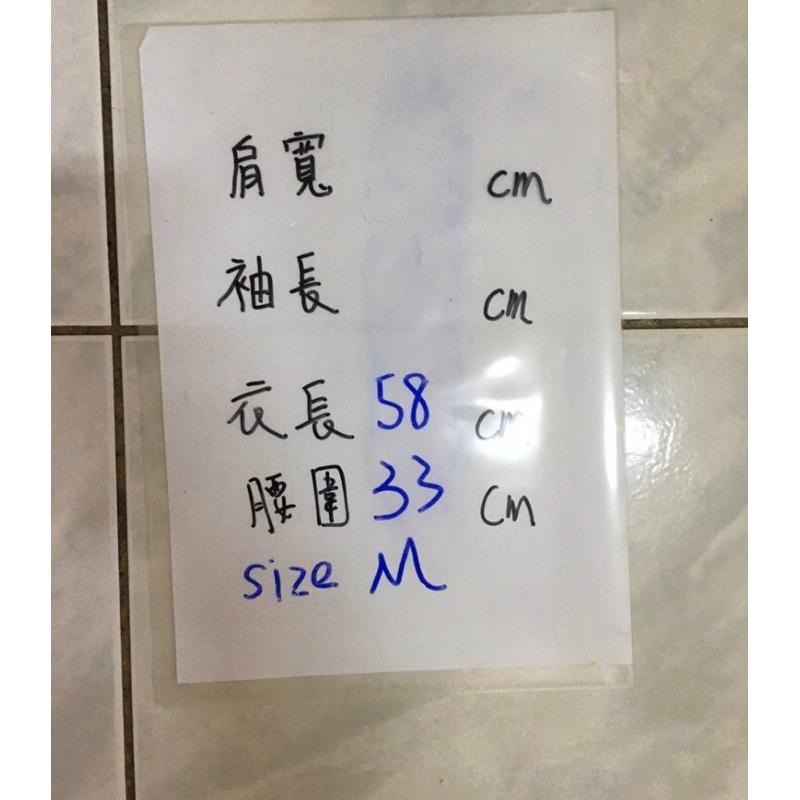 肩寬 cm
袖長 cm
衣長 58 cm
腰圍 33 cm
size M